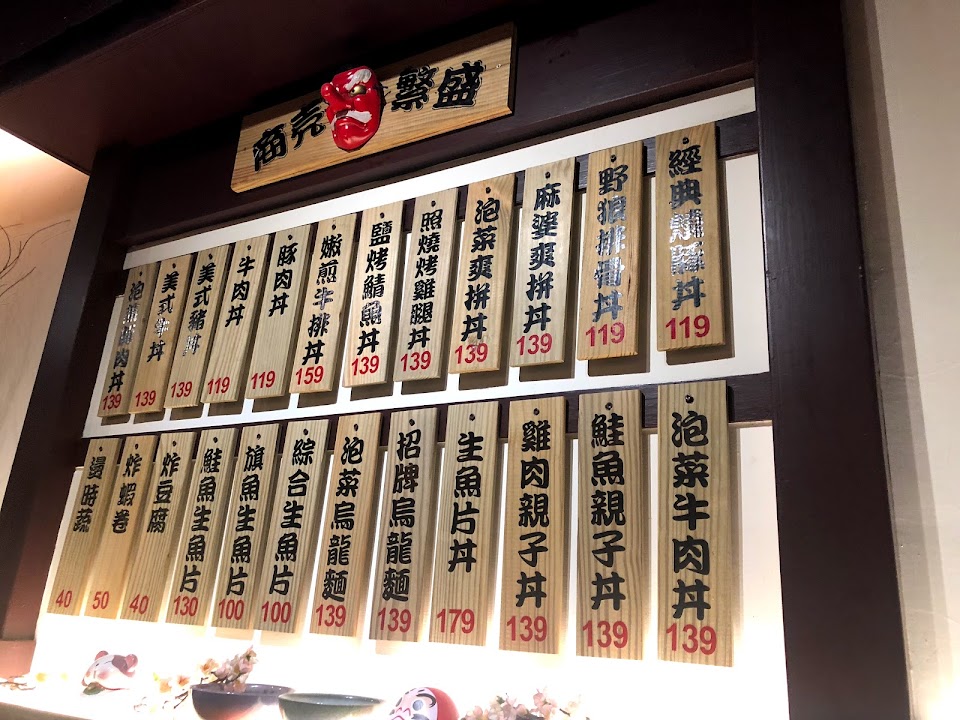 商売繁盛
經典
丼
119
野狼排骨丼
119
麻婆爽拼丼
139
泡菜爽拼丼
139
照燒烤雞腿丼
139
鹽烤鯖魚丼
139
嫩煎牛排丼
159
豚肉丼
119
牛肉丼
119
美式豬丼
139
美式牛丼
139
泡菜豚肉丼
139
泡菜牛肉丼
139
鮭魚親子丼
139
雞肉親子丼
139
生魚片丼
179
招牌烏龍麵
139
泡菜烏龍麵
139
綜合生魚片
100
旗魚生魚片
100
鮭魚生魚片
130
炸豆腐
40
炸蝦卷
50
燙時蔬
40